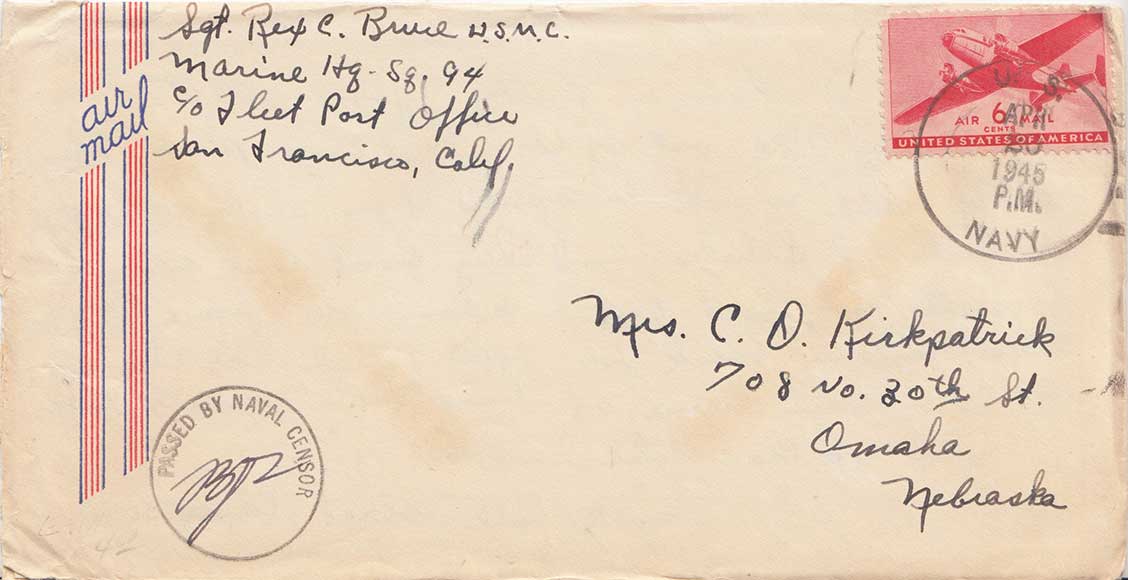 Sgt. Rex C. Bruce U.S.M.C.
Marine Hq. Sq. 94
c/o Fleet Post Office
San Francisco, Calif.
air
mail
AIR 6 MAIL
CENTS
UNITED STATES OF AMERICA
U. S.
APR
20
1945
P.M.
NAVY
Mrs. C. O. Kirkpatrick
708 No. 30th St.
Omaha
Nebraska
PASSED BY NAVAL CENSOR